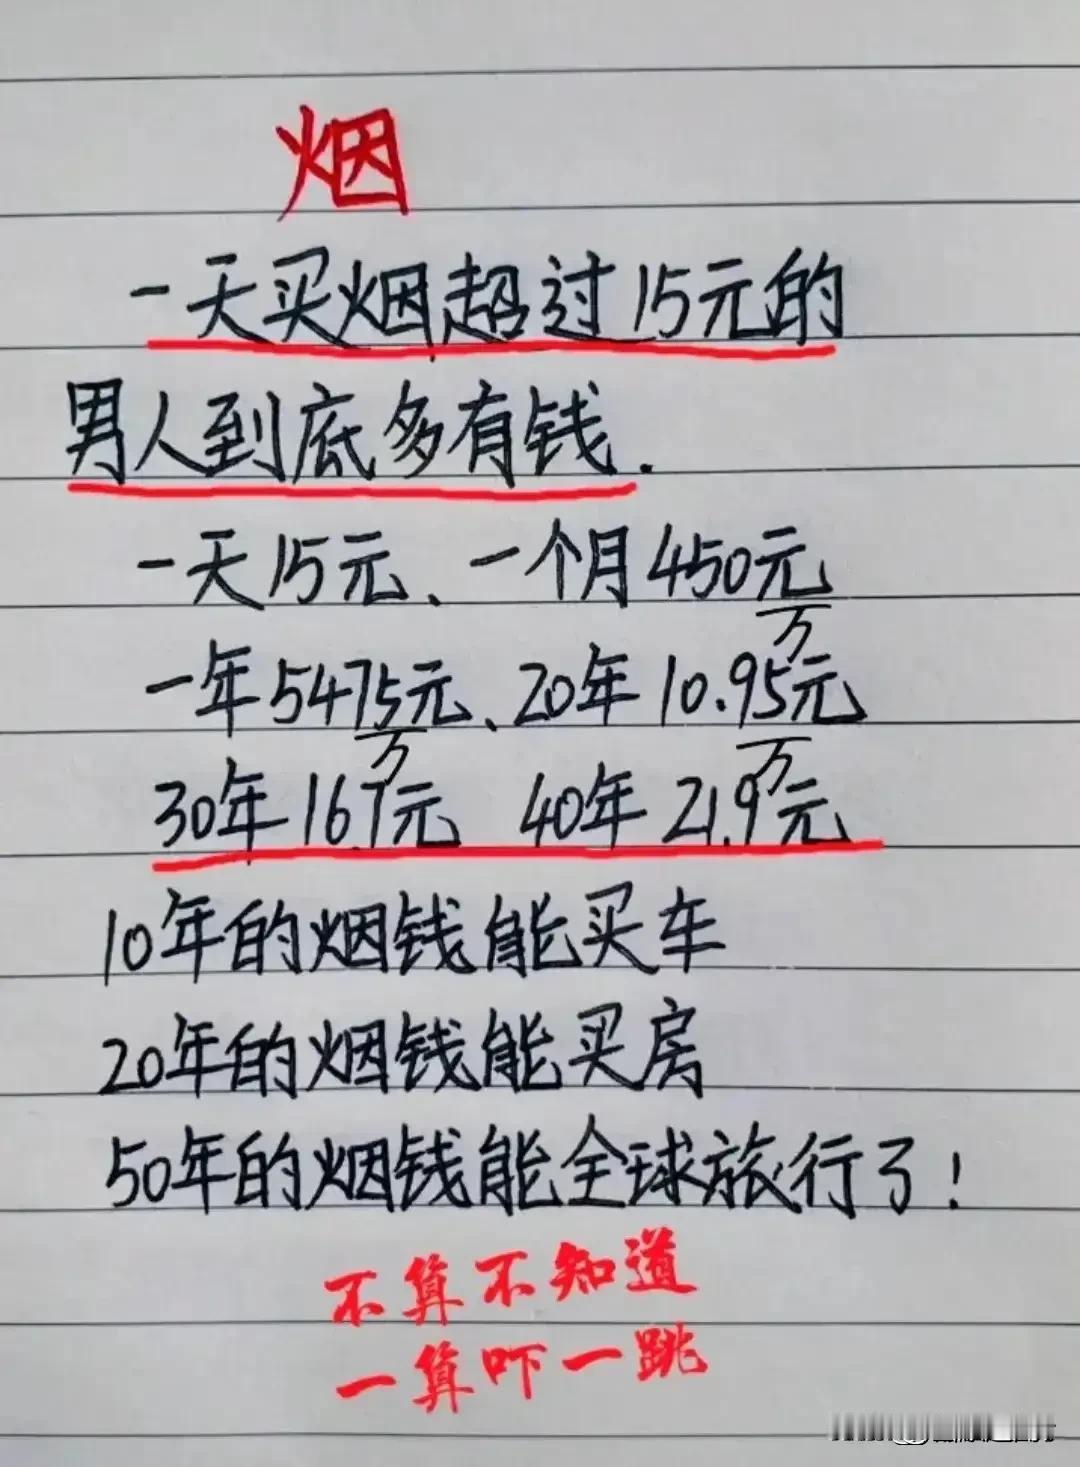 烟
一天买烟超过15元的
男人到底多有钱.
一天15元、一个月450元
一年5475元、20年10.95万元
30年16.7万元 40年21.9万元
10年的烟钱能买车
20年的烟钱能买房
50年的烟钱能全球旅行了!
不算不知道
一算吓一跳